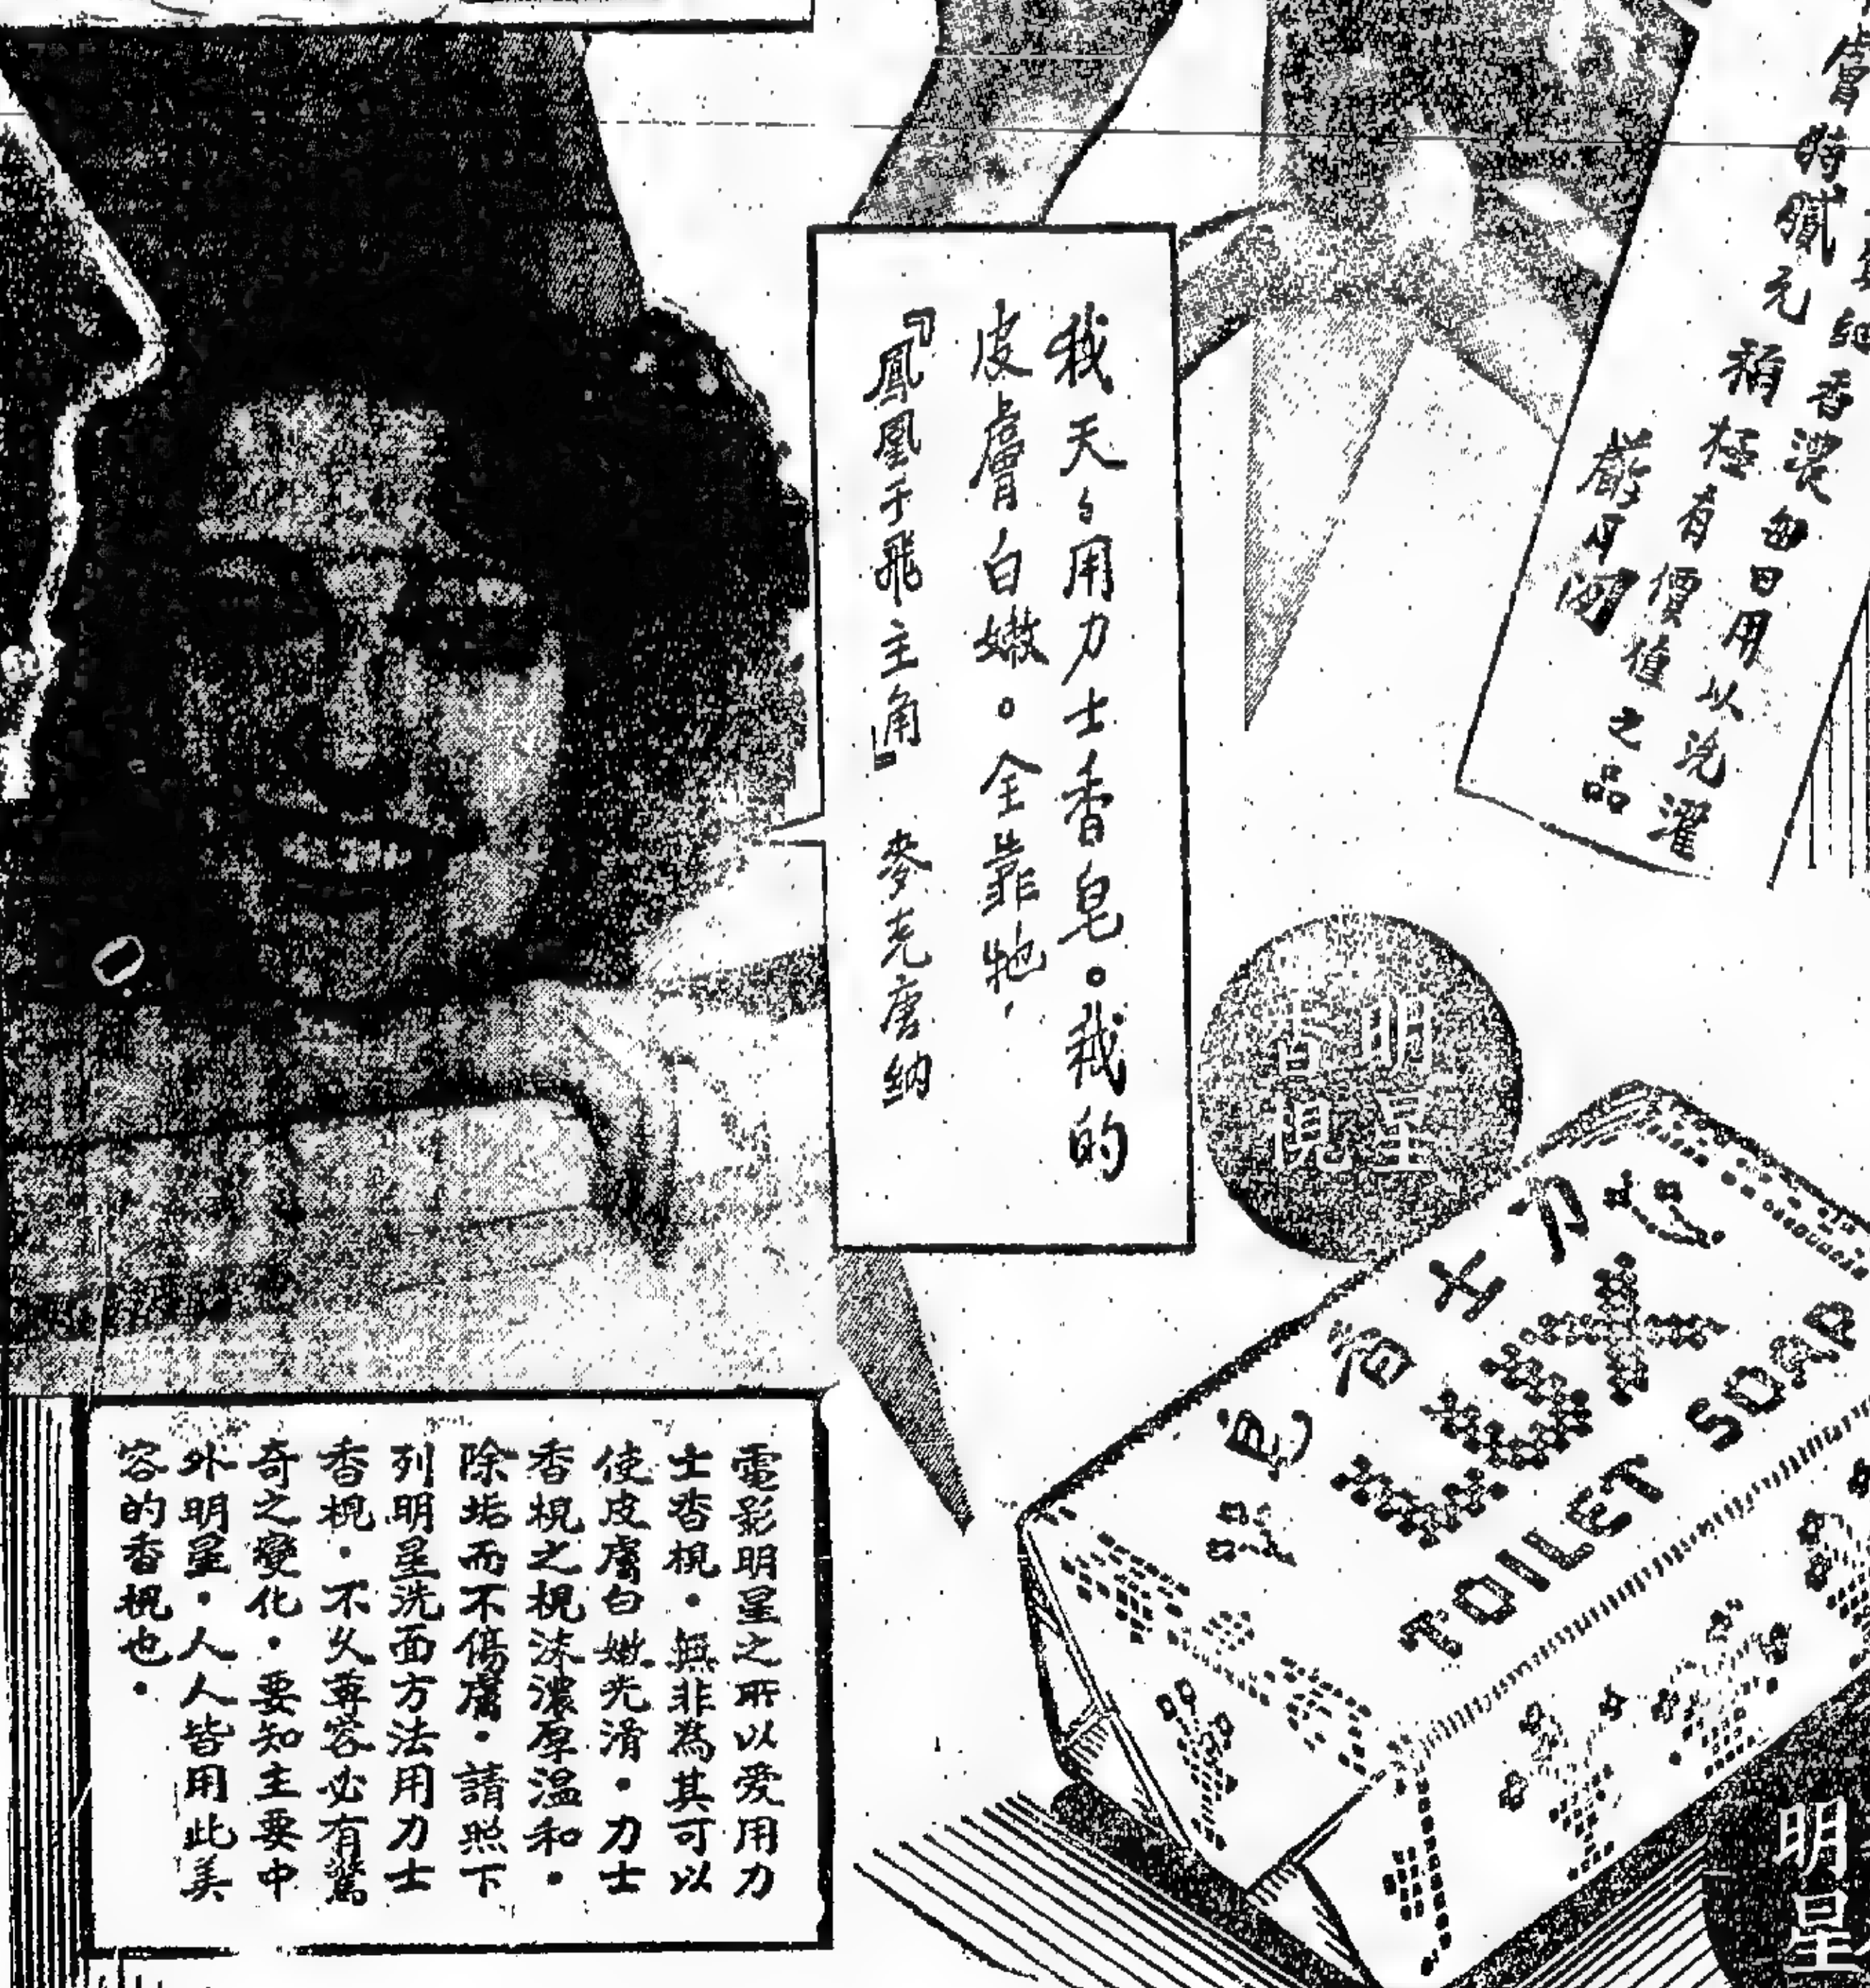 膚時膩元
香濃每日用以洗濯
稱極有價值之品
嚴月嫻
我天々用力士香皂。我的
皮膚白嫩。全靠牠，
『鳳凰于飛主角』 麥克唐納
明星
香梘
力士香皂
LUX
TOILET SOAP
電影明星之所以愛用力
士香梘・無非為其可以
使皮膚白嫩光滑・力士
香梘之梘沫濃厚溫和・
除垢而不傷膚・請照下
列明星洗面方法用力士
香梘・不久尊容必有驚
奇之變化・要知主要中
外明星・人人皆用此美
容的香梘也・
明星